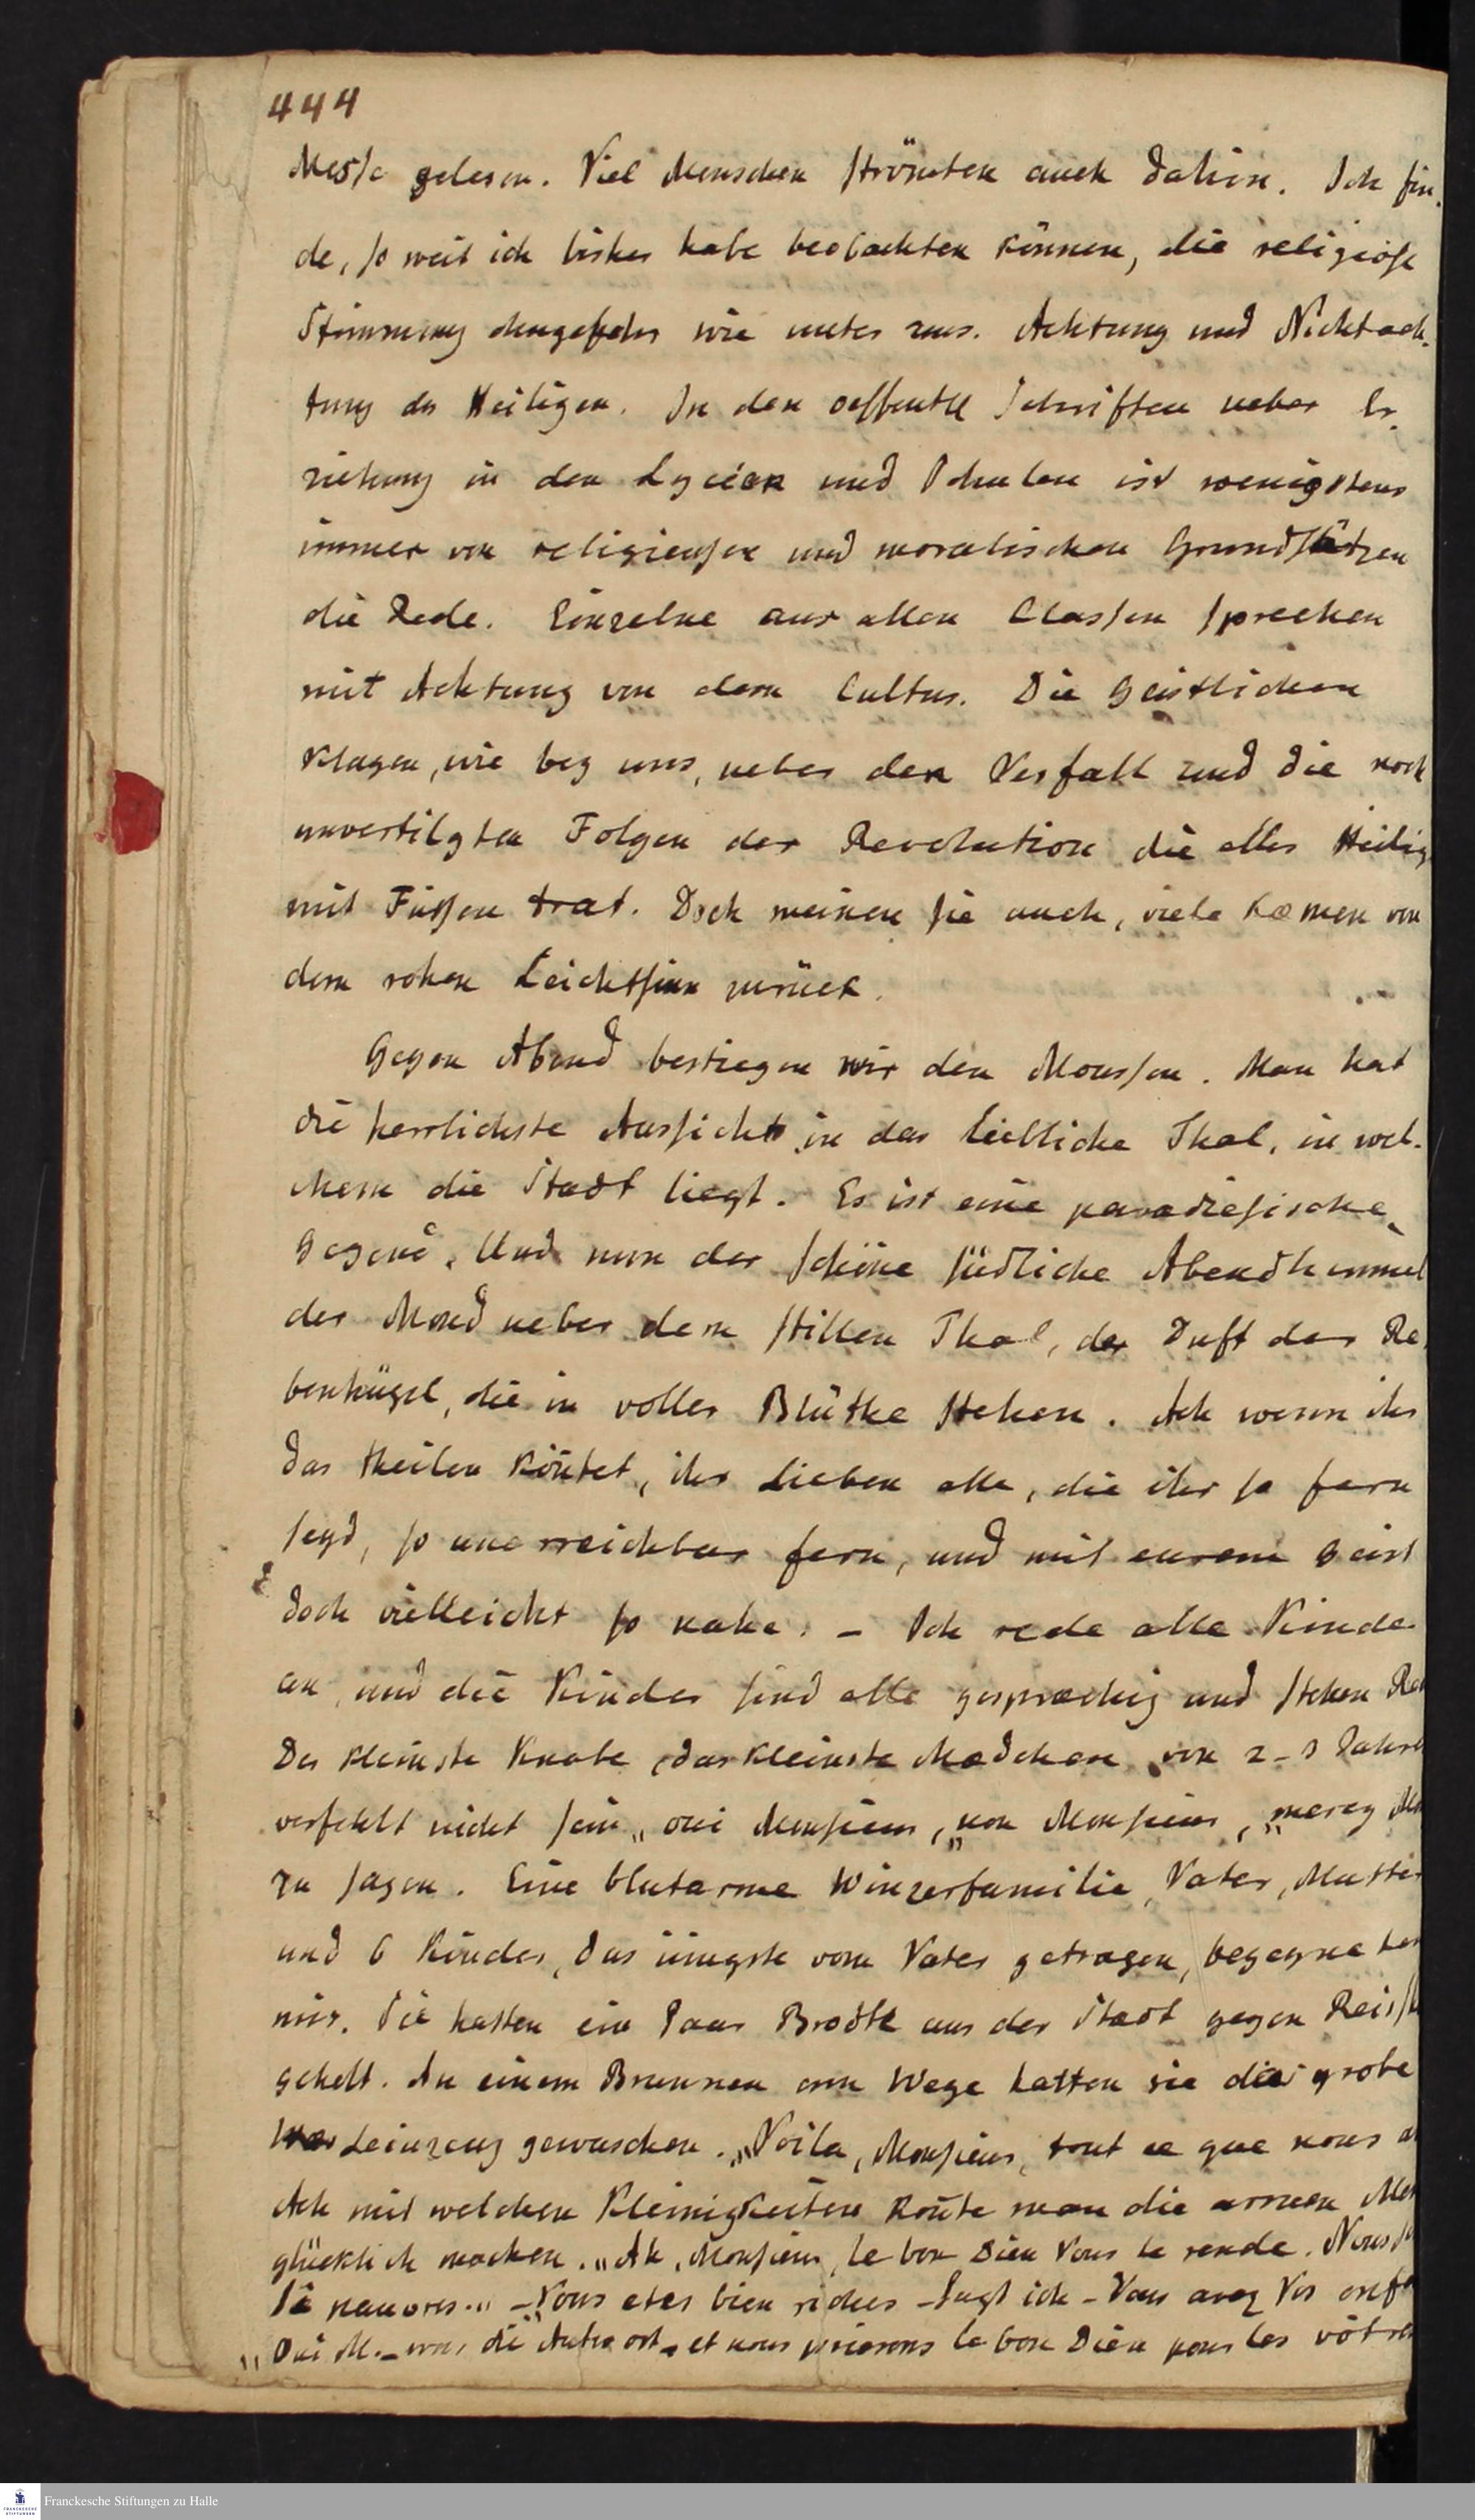 444
Messe gelesen. Viel Menschen strömten auch dahin. Ich fin-
de, so weit ich bisher habe beobachten können, die religiöse
Stimmung ohngefehr wie unter uns. Achtung und Nichtach-
tung des Heiligen. In den oeffentl Schriften ueber Er-
ziehung in den Lycéen und Schulen ist wenigstens
immer von religieusen und moralischen Grundsätzen
die Rede. Einzelne aus allen Classen sprechen
mit Achtung von dem Cultus. Die Geistlichen
klagen, wie bey uns, ueber den Verfall und die noch
unvertilgten Folgen der Revolution die alles Heilig
mit Füssen trat. Doch meinen sie auch, viele kaemen von
dem rohen Leichtsinn zurück.
Gegen Abend bestiegen wir den Mousson. Man hat
die herrlichste Aussicht in das liebliche Thal, in wel-
chem die Stadt liegt. Es ist eine paradiesische
Gegend. Und nun der schöne südliche Abendhimmel
der Mond ueber dem stillen Thal, der Duft der Re-
benhügel, die in voller Blüthe stehen. Ach wenn ihr
das theilen köntet, ihr Lieben alle, die ihr so fern
seyd, so unerreichbar fern, und mit eurem Geist
doch vielleicht so nahe. - Ich rede alle Kinder
an, und die Kinder sind alle gespraechig und stehen Red
Der kleinste Knabe, das kleinste Maedchen von 2-3 Jahren
verfehlt nicht sein „oui Monsieur, „non Monsieur, „mercy Mo
zu sagen. Eine blutarme Winzerfamilie, Vater, Mutter
und 6 Kinder, das jüngste vom Vater getragen, begegneten
mir. Sie hatten ein Paar Brodte aus der Stadt gegen Reiss
geholt. An einem Brunnen am Wege hatten sie die grobe
Leinzeug gewaschen. „Voila, Monsieur, tout ce que nous a
Ach mit welchen Kleinigkeiten konte man die armen Men
glücklich machen. „Ah, Monsieur, le bon Dieu Vous le rende. Nous so
si pauvres." - „Vous etes bien riches - sagt ich - Vous avez Vos enfa
„Oui M. - war die Antwort, et nous prierons le bon Dieu pour les vôtres
Franckesche Stiftungen zu Halle